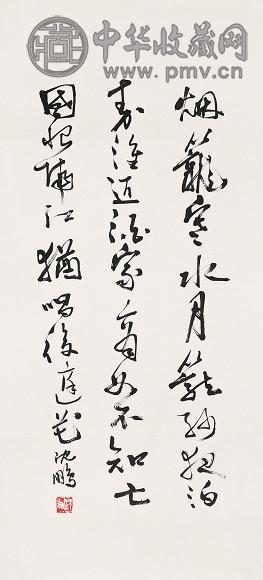 中华收藏网
www.pmv.cn
烟籠寒水月籠沙夜泊
秦淮近酒家商女不知亡
國恨隔江猶唱後庭花
沈鹏